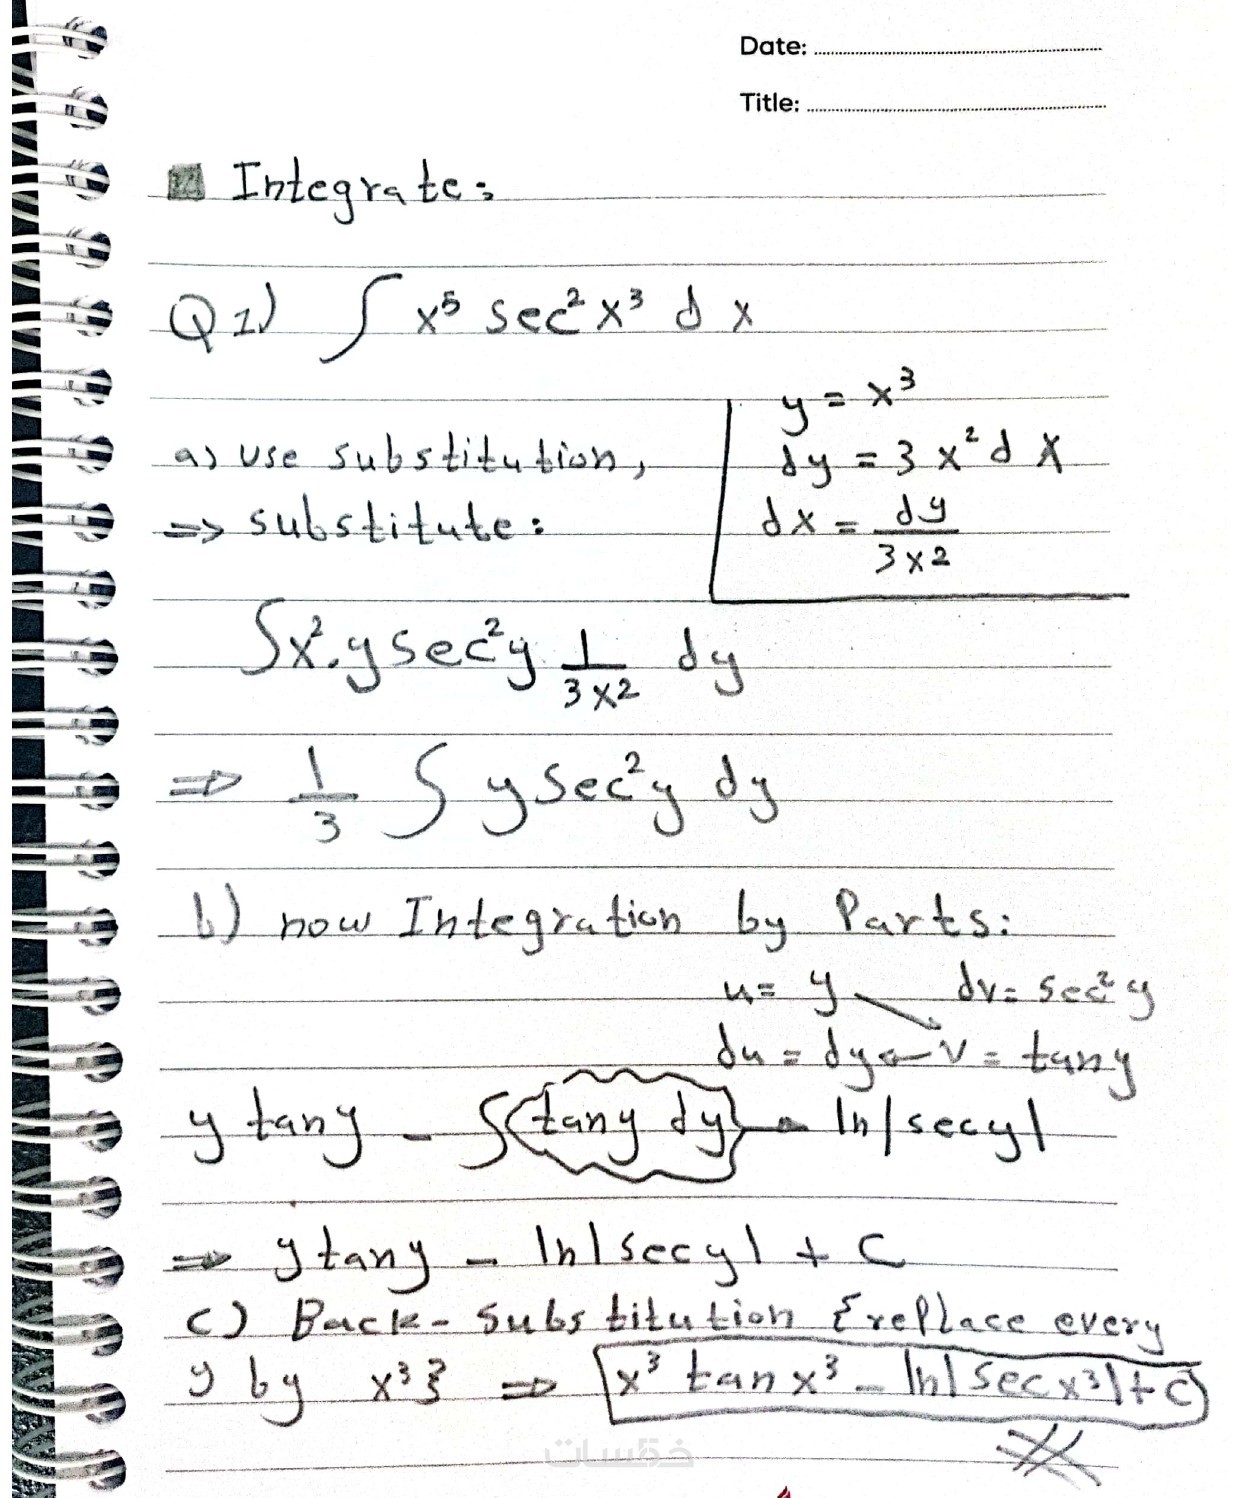 Date:
Title:
Integrate:
Q1) ∫ x⁵ sec² x³ d x
y = x³
a) use substitution, dy = 3 x² d x
⇒ substitute: dx = dy / 3x2
∫x².y sec²y . 1/3x2 dy
⇒ 1/3 ∫ y sec²y dy
b) now Integration by Parts:
u = y dv = sec² y
du = dy ← v = tany
y tany - ∫ tany dy → ln|secy|
⇒ ytany - ln|secy| + C
c) Back-substitution {replace every
y by x³} ⇒ x³ tan x³ - ln|sec x³| + C
خمسات